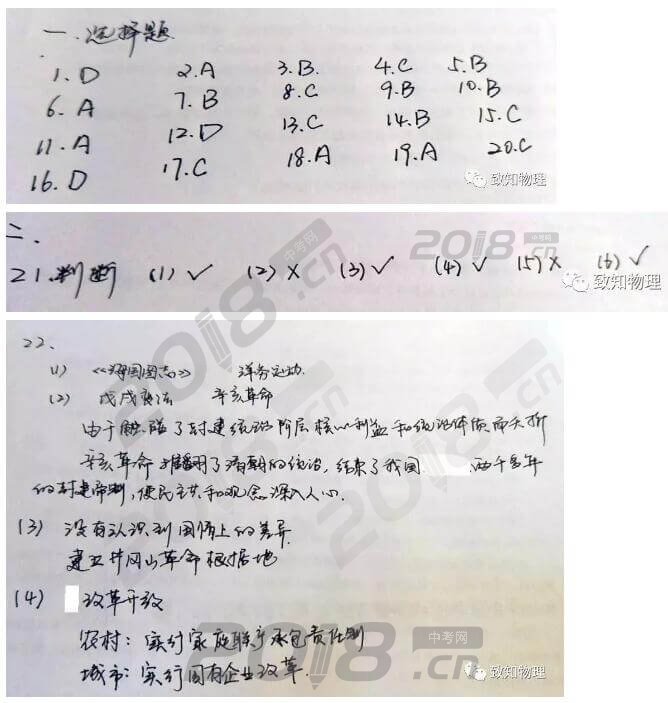 一.选择题
1.D 2.A 3.B. 4.C 5.B
6.A 7.B 8.C 9.B 10.B
11.A 12.D 13.C 14.B 15.C
16.D 17.C 18.A 19.A 20.C
致知物理
二.
21.判断 (1)√ (2)× (3)√ (4)√ (5)× (6)√
致知物理
22、
(1) 《海国图志》 洋务运动.
(2) 戊戌变法 辛亥革命
由于触碰了封建统治阶层核心利益和统治体质而夭折
辛亥革命推翻了清朝的统治,结束了我国 两千多年
的封建帝制,使民主共和观念深入人心.
(3) 没有认识到国情上的差异.
建立井冈山革命根据地
(4) 改革开放
农村:实行家庭联产承包责任制
城市:实行国有企业改革.
致知物理
2018.cn
中考网